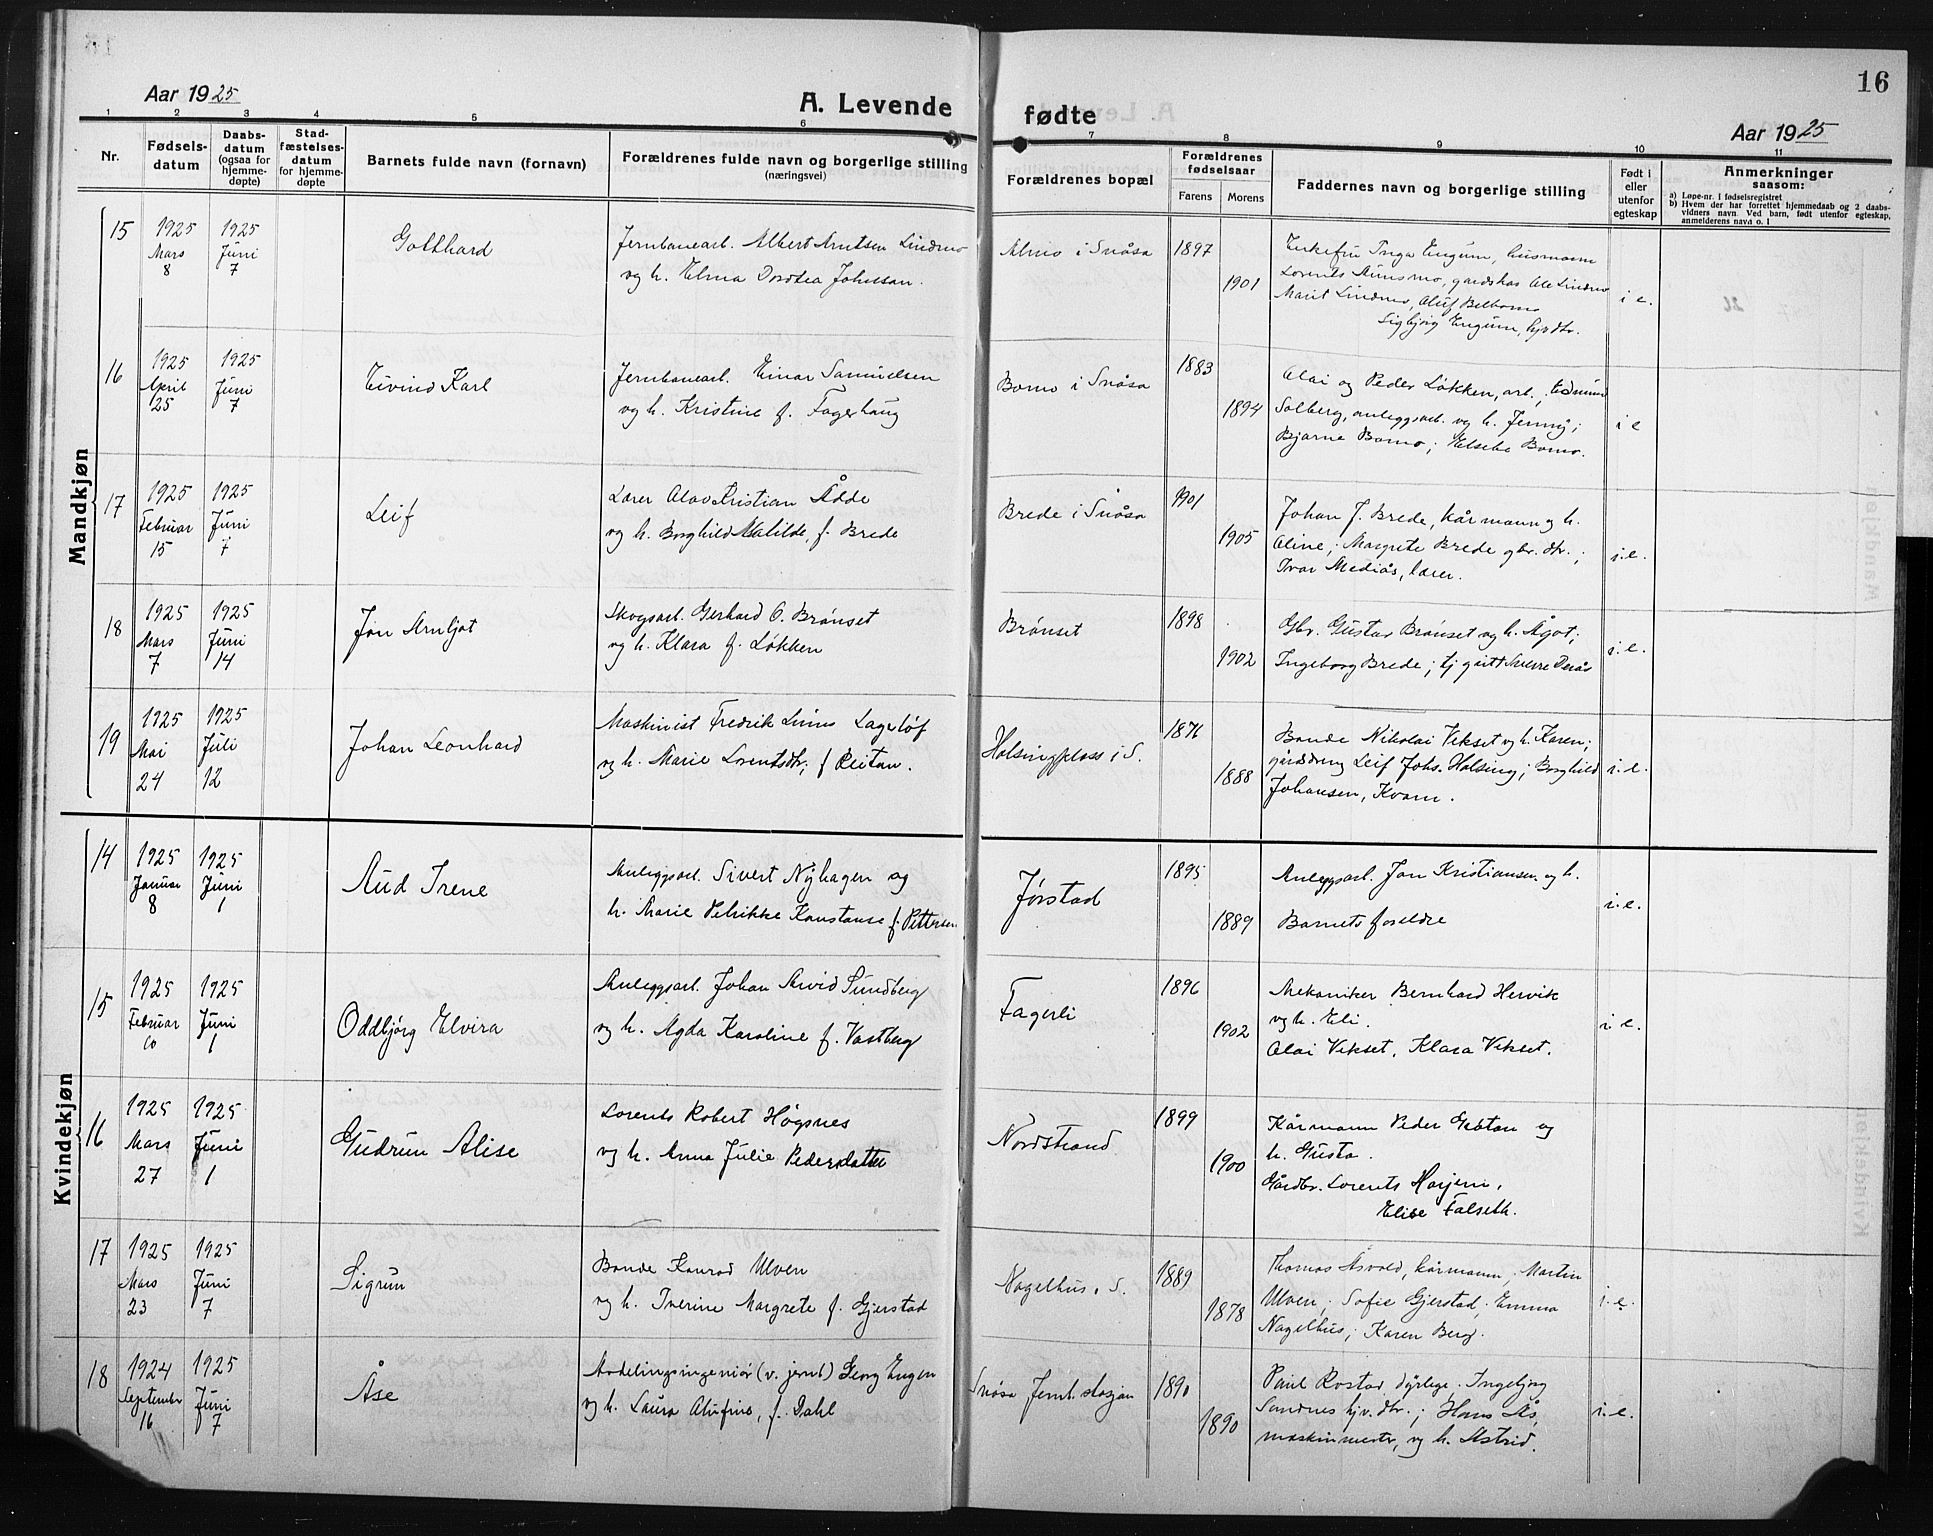 16
Aar 1925
A. Levende fødte
Aar 1925
1 2 3 4 5 6 7 8 9 10 11
Nr.
Fødsels-
datum
Daabs-
datum
(ogsaa for
hjemme-
døpte)
Stad-
fæstelses-
datum
for hjemme-
døpte
Barnets fulde navn (fornavn)
Forældrenes fulde navn og borgerlige stilling
(næringsvei)
Forældrenes bopæl
Forældrenes
fødselsaar
Farens Morens
Faddernes navn og borgerlige stilling
Født i
eller
utenfor
egteskap
Anmerkninger
saasom:
a) Løpe-nr. i fødselsregistret
b) Hvem der har forrettet hjemmedaab og 2 daabs-
vidners navn. Ved barn, født utenfor egteskap,
anmelderens navn o. l
Mandkjøn
15
1925
Mars
8
1925
Juni
7
Gotthard
Jernbanearb. Albert Arntsen Lindmo
og h. Elma Dordtea Johnsen.
Almo i Snåsa
1897
1901
Enkefru Inga Engum, husmann
Lorents Aunsmo, gardskar Ole Lindmo
Marit Lindmo, Oluf
Sigbjørg Engum,
i e.
16
1925
April
25
1925
Juni
7
Eivind Karl
Jernbanearb. Einar Samuelsen
og h. Kristine f. Fagerhaug
Bomo i Snåsa
1883
1894
Olai og Peder Løkken, arb., Edmund
Solberg, anleggsarb. og h. Jenny;
Bjarne Bomo; Elsebe Bomo.
i e
17
1925
Februar
15
1925
Juni
7
Leif
Lærer Olav Kristian Ådde
og h. Borghild Matilde, f. Brede
Brede i Snåsa
1901
1905
Johan J. Brede, kårmann og h.
Oline; Margrete Brede gbr. dtr.;
Ivar Mediås, lærer.
i.e.
18
1925
Mars
7
1925
Juni
14
Jon Arnljot
Skogsarb. Gerhard O. Brønset
og h. Klara f. Løkken
Brønset
1898
1902
Gbr. Gustav Brønset og h. Ågot;
Ingeborg Brede; tj.gutt Sverre
i.e.
19
1925
Mai
24
1925
Juli
12
Johan Leonhard
Maskinist Fredrik Linus Lagerløf
og h. Marie Lorentsdtr; f Reitan.
Holsingplass i S.
1876
1888
Bonde Nikolai Vekset og h. Karen;
gårddreng Leif Johs. Holsing; Borghild
Johansen, Kvam.
i.e.
Kvindekjøn
14
1925
Januar
8
1925
Juni
1
Aud Irene
Anleggsarb. Sivert Nyhagen og
h. Marie Petrikke Konstanse f. Pettersen
Jørstad
1895
1889
Anleggsarb. Jon Kristiansen og h.
Barnets foreldre
i.e.
15
1925
Februar
10
1925
Juni
1
Oddbjørg Elvira
Anleggsarb. Johan Arvid Sundberg
og h. Agda Karoline f. Vastberg
Fagerli
1896
1902
Mekaniker Bernhard Hervik
og h. Eli.
Olai Vekset, Klara Vekset.
i e.
16
1925
Mars
27
1925
Juni
1
Gudrun Alise
Lorents Robert Høgsnes
og h. Anna Julie Pedersdatter
Nordstrand
1899
1900
Kårmann Peder Grøtan og
h. Gusta.
Gårdbr. Lorents Harjem,
Elise Falseth.
17
1925
Mars
23
1925
Juni
7
Sigrun
Bonde Konrad Ulven
og h. Iverine Margrete f. Gjerstad
Nagelhus, S.
1889
1878
Thomas Åsvold, kårmann, Martin
Ulven; Sofie Gjerstad, Emma
Nagelhus; Karen Berg.
i.e.
18
1924
September
16
1925
Juni
7
Åse
Avdelingsingeniør (v. jernb.) Georg Engen
og h. Laura Olufine, f. Dahl
Snåsa Jernb.stasjon
1890
1890
Paul Rostad, dyrlege, Ingebjørg
Sandnes hjv. dtr.; Hans Ås,
maskinmester, og h. Astrid.
i.e.